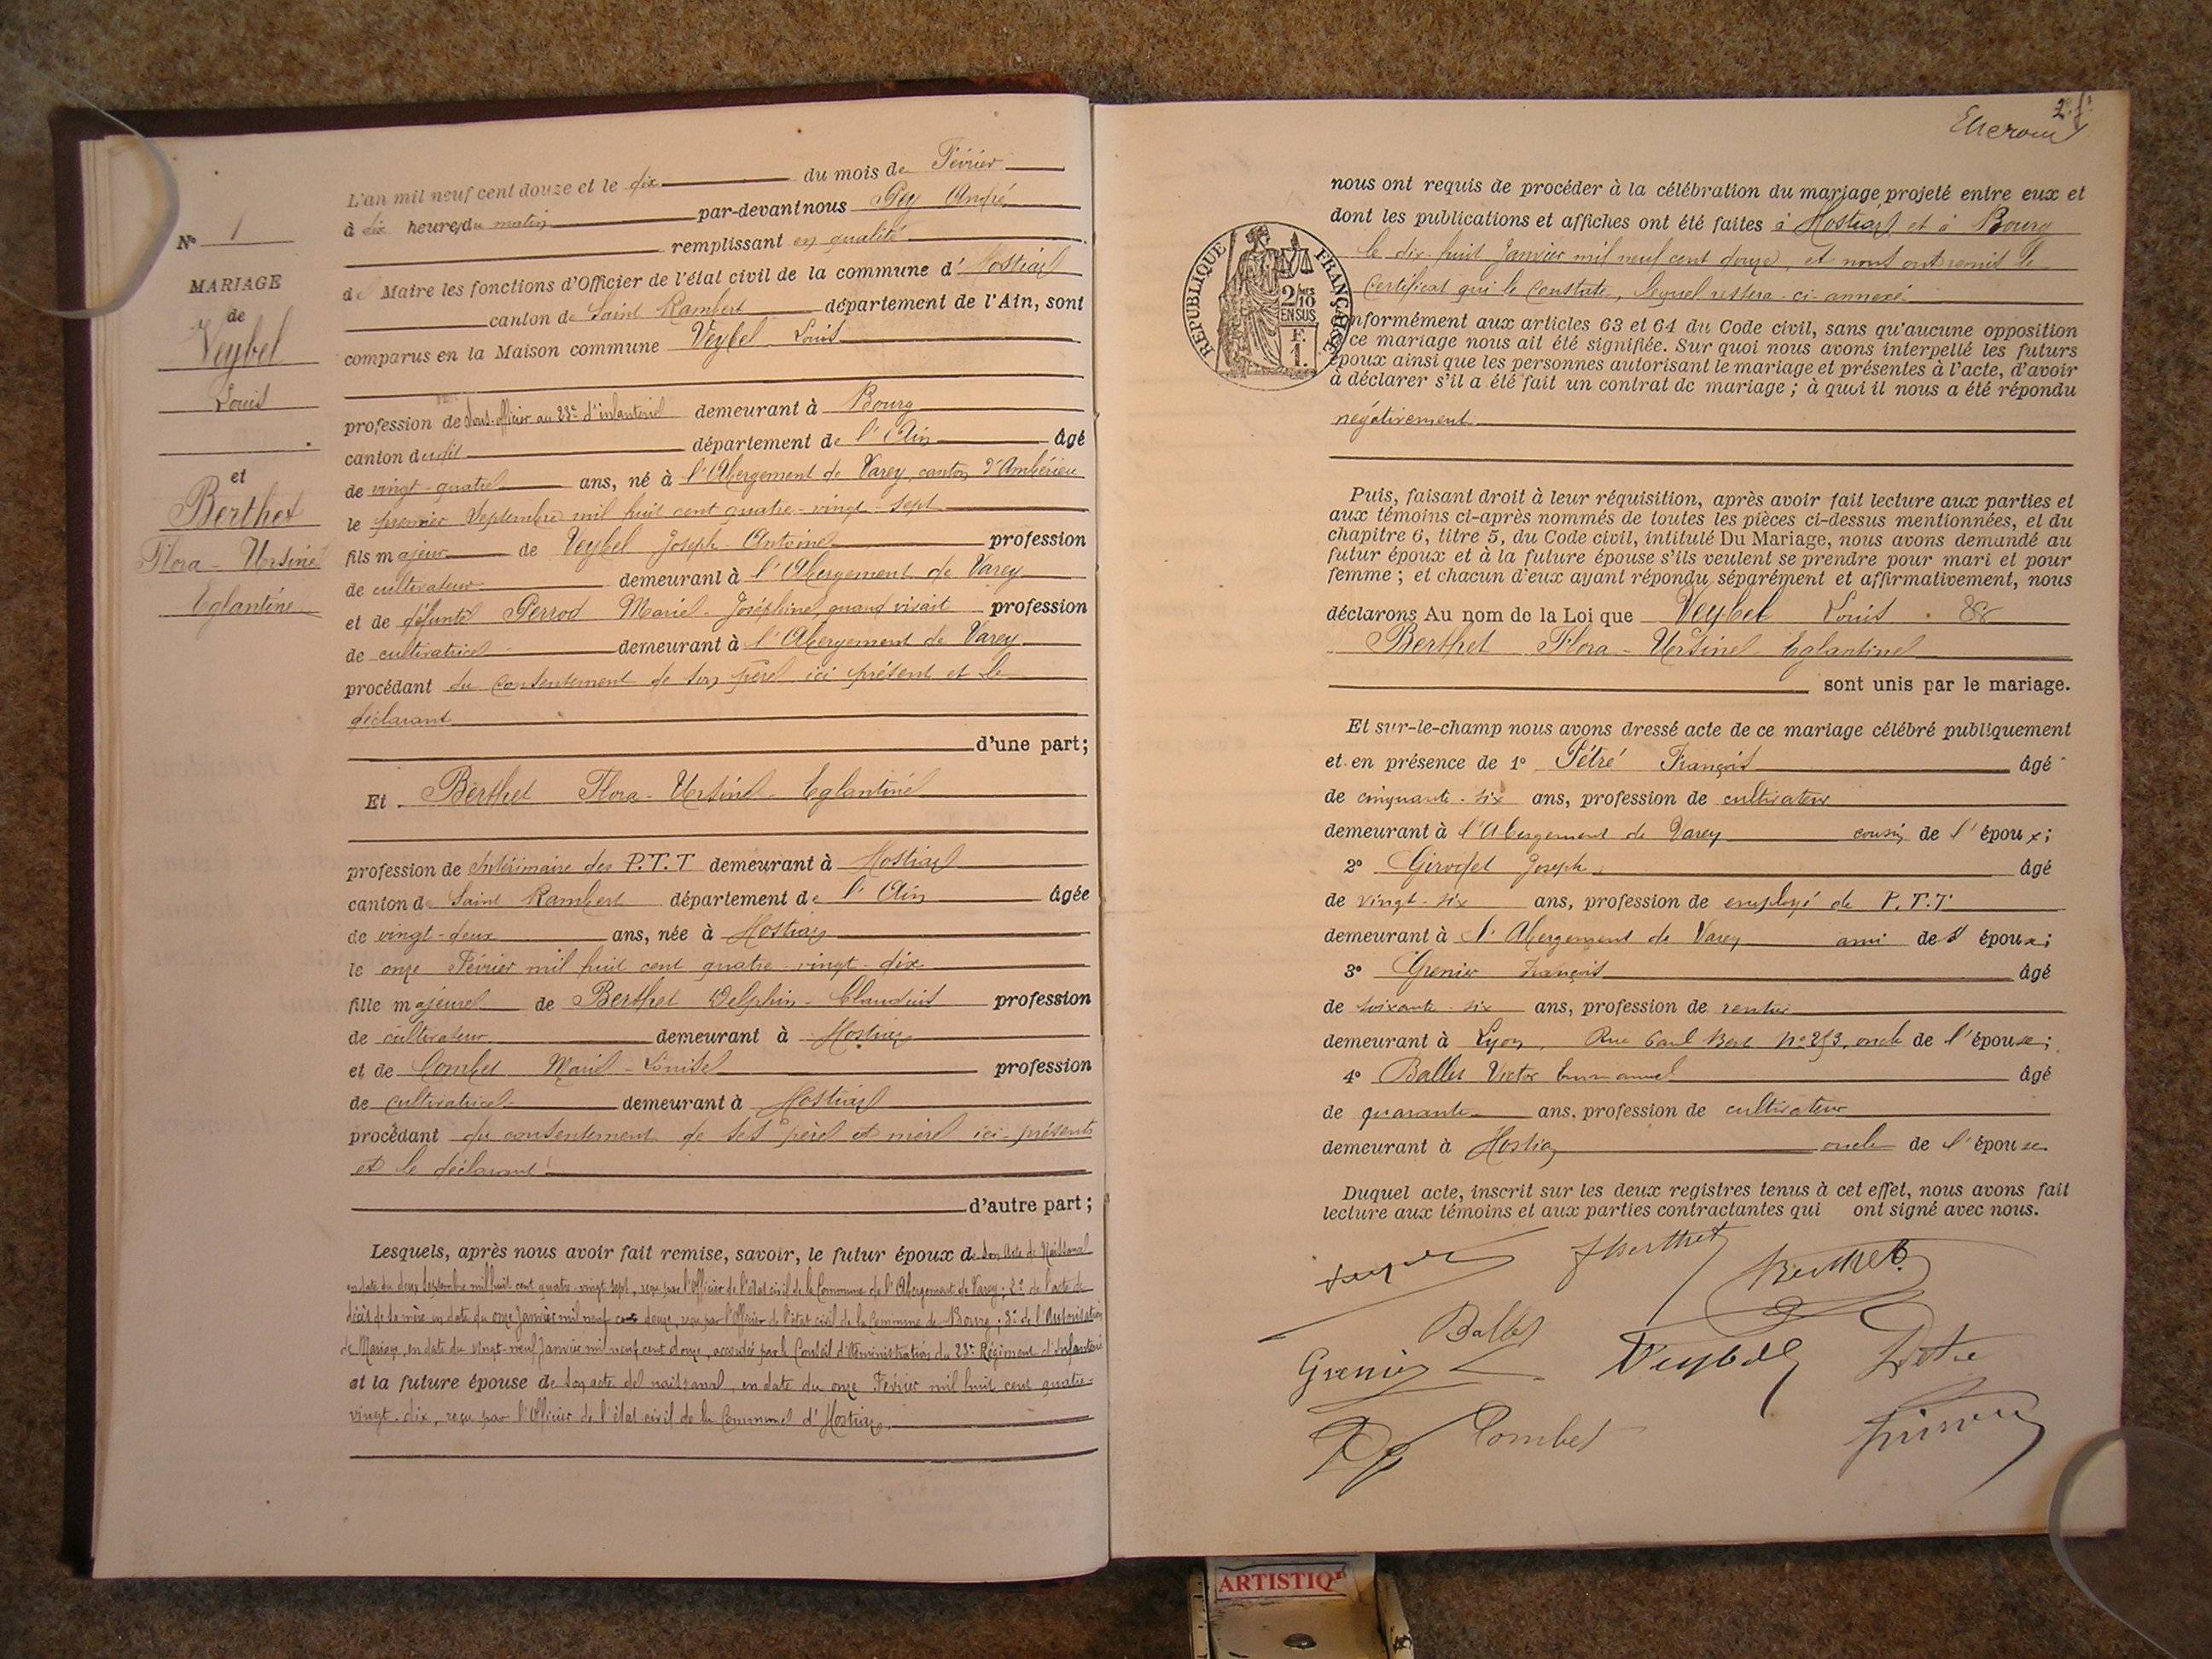 L'an mil neuf cent douze et le dix du mois de Février
à dix heures du matin par-devant nous Pey André
remplissant en qualité
de Maire les fonctions d'Officier de l'état civil de la commune d'Hostias
canton de Saint Rambert département de l'Ain, sont
comparus en la Maison commune Veybel Louis
profession de Sous-officier au 23e d'infanterie demeurant à Bourg
canton dudit département de l'Ain âgé
de vingt-quatre ans, né à l'Abergement de Varey, canton d'Ambérieu
le premier Septembre mil huit cent quatre-vingt-sept
fils majeur de Veybel Joseph-Antoine profession
de cultivateur demeurant à l'Abergement de Varey
et de défunte Perrod Marie-Joséphine, quand vivait profession
de cultivatrice demeurant à l'Abergement de Varey
procédant du consentement de son père ici présent et le
déclarant
d'une part;
Et Berthet Flora-Ursine-Eglantine
profession de Intérimaire des P.T.T demeurant à Hostias
canton de Saint Rambert département de l'Ain âgée
de vingt-deux ans, née à Hostias
le onze Février mil huit cent quatre-vingt-dix
fille majeure de Berthet Delphin-Claudius profession
de cultivateur demeurant à Hostias
et de Combet Marie-Louise profession
de cultivatrice demeurant à Hostias
procédant du consentement de ses père et mère ici présents
et le déclarant
d'autre part;
Lesquels, après nous avoir fait remise, savoir, le futur époux de son Acte de Naissance
en date du deux Septembre mil huit cent quatre-vingt sept, reçu par l'Officier de l'état civil de la Commune de l'Abergement de Varey; 2° de l'acte de
décès de sa mère en date du onze Janvier mil neuf cent douze, reçu par l'Officier de l'état civil de la Commune de Bourg; 3° de l'Autorisation
de Mariage, en date du vingt-neuf Janvier mil neuf cent douze, accordée par le Conseil d'Administration du 23e Régiment d'Infanterie
et la future épouse de son acte de naissance, en date du onze Février mil huit cent quatre-
vingt-dix, reçu par l'Officier de l'état civil de la Commune d'Hostias.
N° 1
MARIAGE
de
Veybel
Louis
et
Berthet
Flora-Ursine
Eglantine
2
nous ont requis de procéder à la célébration du mariage projeté entre eux et
dont les publications et affiches ont été faites à Hostias et à Bourg
le dix huit Janvier mil neuf cent douze, et nous ont remis le
Certificat qui le Constate, lequel restera ci-annexé.
RÉPUBLIQUE FRANÇAISE
2/10
EN SUS
F.
1.
nformément aux articles 63 et 64 du Code civil, sans qu'aucune opposition
ce mariage nous ait été signifiée. Sur quoi nous avons interpellé les futurs
époux ainsi que les personnes autorisant le mariage et présentes à l'acte, d'avoir
à déclarer s'il a été fait un contrat de mariage; à quoi il nous a été répondu
négativement
Puis, faisant droit à leur réquisition, après avoir fait lecture aux parties et
aux témoins ci-après nommés de toutes les pièces ci-dessus mentionnées, et du
chapitre 6, titre 5, du Code civil, intitulé Du Mariage, nous avons demandé au
futur époux et à la future épouse s'ils veulent se prendre pour mari et pour
femme; et chacun d'eux ayant répondu séparément et affirmativement, nous
déclarons Au nom de la Loi que Veybel Louis &
Berthet Flora-Ursine-Eglantine
sont unis par le mariage.
Et sur-le-champ nous avons dressé acte de ce mariage célébré publiquement
et en présence de 1° Pétré François âgé
de cinquante-six ans, profession de cultivateur
demeurant à l'Abergement de Varey cousin de l'époux;
2° Girodet Joseph âgé
de vingt-six ans, profession de employé de P.T.T
demeurant à l'Abergement de Varey ami de l'époux;
3° Grenier François âgé
de soixante-six ans, profession de rentier
demeurant à Lyon, Rue Paul Bert N° 253, oncle de l'épouse;
4° Ballet Victor Emmanuel âgé
de quarante ans, profession de cultivateur
demeurant à Hostias oncle de l'épouse
Duquel acte, inscrit sur les deux registres tenus à cet effet, nous avons fait
lecture aux témoins et aux parties contractantes qui ont signé avec nous.
fberthet
Berthet
Ballet
Grenier
Veybel
Petre
Combet
ARTISTIQ